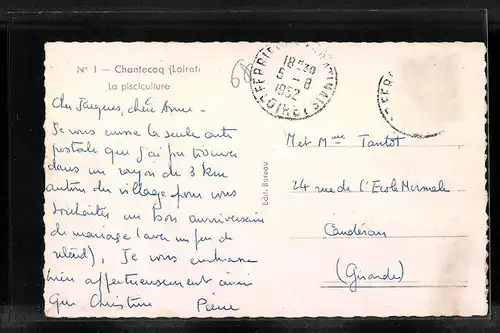 N° 1 — Chantecoq (Loiret)
La pisciculture
Cher Jacques, chère Anne -
Je vous envoie la seule carte
postale que j'ai pu trouver
dans un rayon de 3 km
autour du village pour vous
souhaiter un bon anniversaire
de mariage (avec un peu de
retard). Je vous embrasse
bien affectueusement ainsi
que Christine Pierre
Edit. Bareau
18H30
5 - 8
1952
LOIRET
M et Mme Tantot
24 rue de l'Ecole Normale
Caudéran
(Gironde)